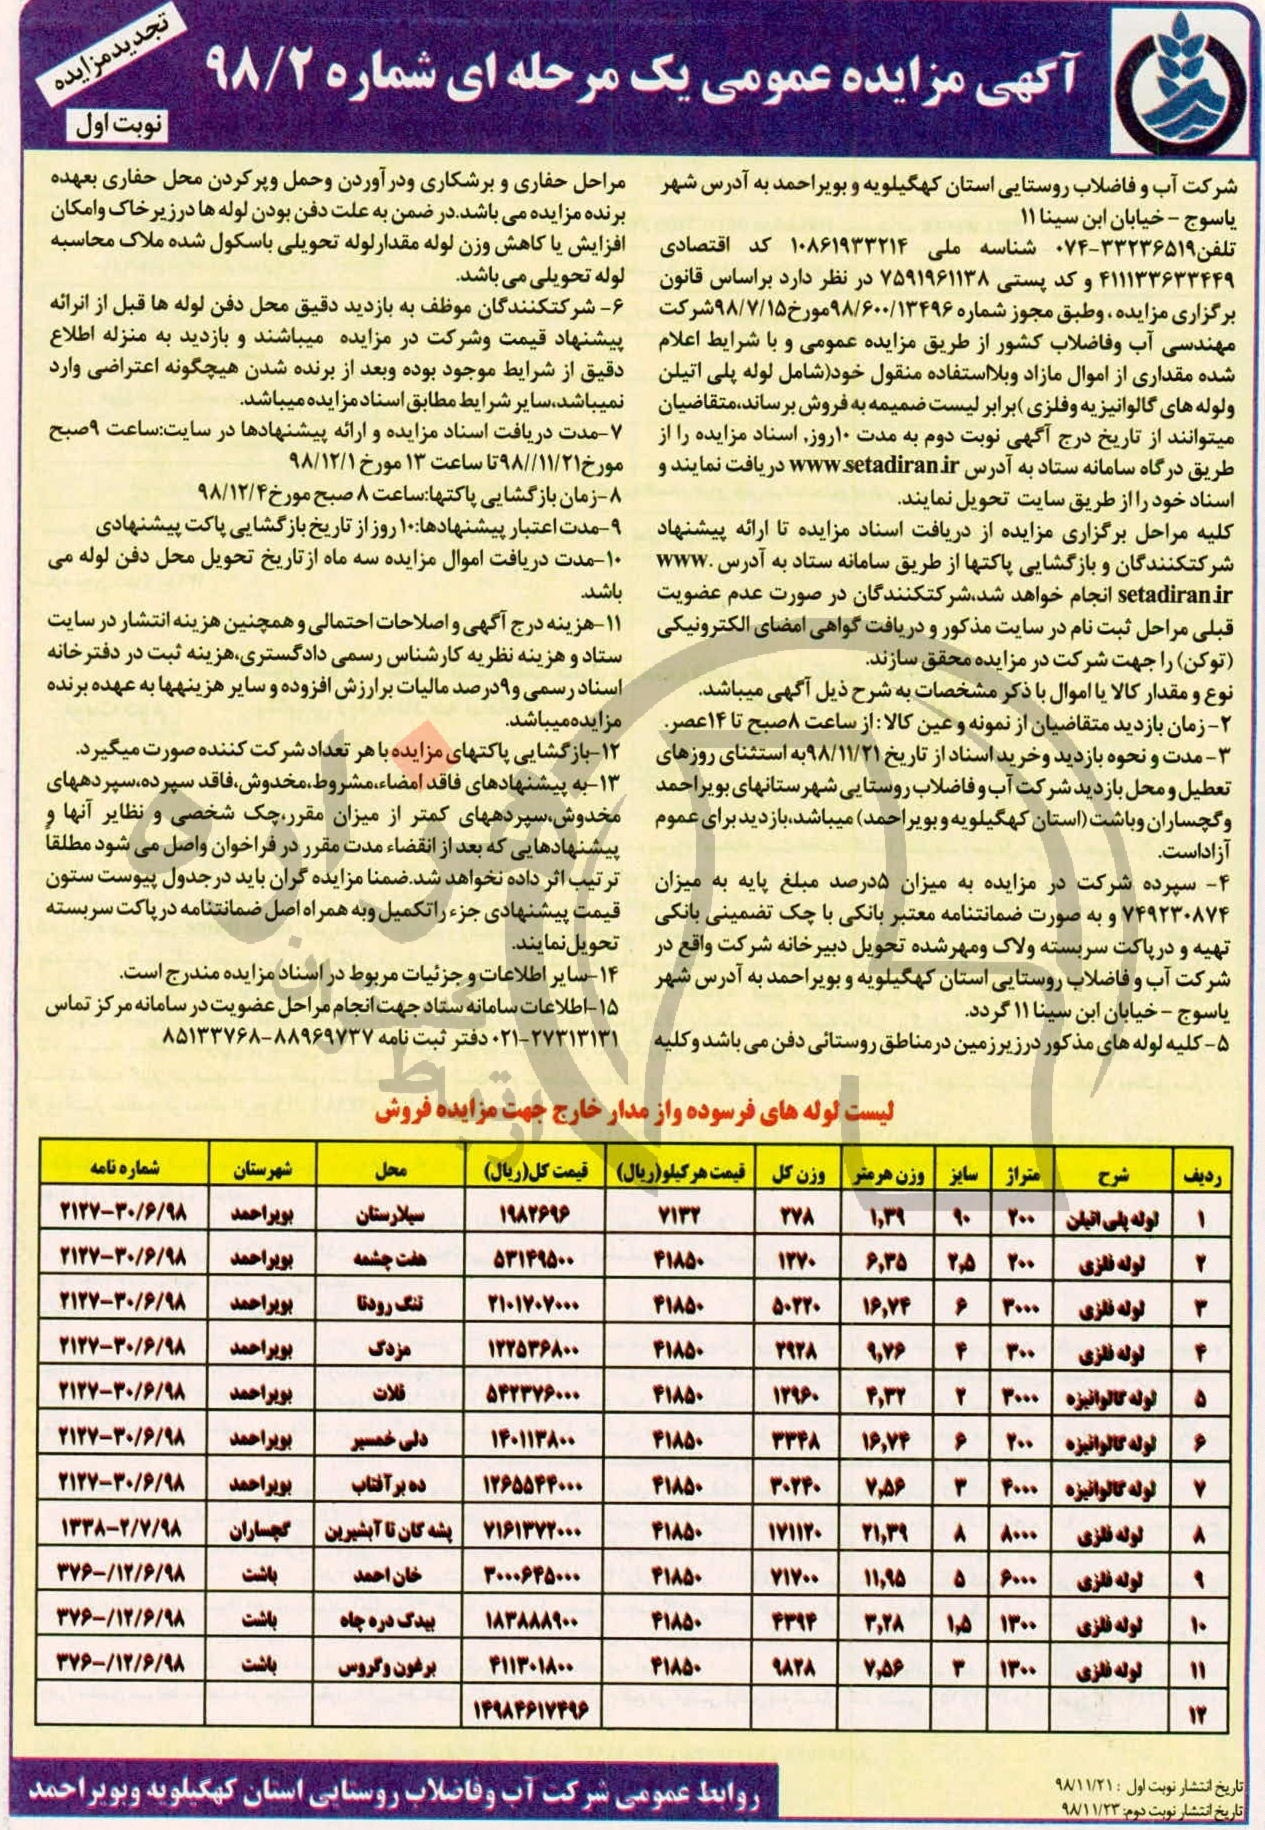 آگهی مزایده عمومی یک مرحله ای شماره ۹۸/۲
تجدیدمزایده
نوبت اول
شرکت آب و فاضلاب روستایی استان کهگیلویه و بویراحمد به آدرس شهر
یاسوج - خیابان ابن سینا ۱۱
تلفن۳۳۲۳۶۵۱۹-۰۷۴ شناسه ملی ۱۰۸۶۱۹۳۳۲۱۴ کد اقتصادی
۴۱۱۱۳۳۶۳۳۴۴۹ و کد پستی ۷۵۹۱۹۶۱۱۳۸ در نظر دارد براساس قانون
برگزاری مزایده ، وطبق مجوز شماره ۹۸/۶۰۰/۱۳۴۹۶مورخ۹۸/۷/۱۵شرکت
مهندسی آب وفاضلاب کشور از طریق مزایده عمومی و با شرایط اعلام
شده مقداری از اموال مازاد وبلااستفاده منقول خود(شامل لوله پلی اتیلن
ولوله های گالوانیزیه وفلزی )برابر لیست ضمیمه به فروش برساند،متقاضیان
میتوانند از تاریخ درج آگهی نوبت دوم به مدت ۱۰روز، اسناد مزایده را از
طریق درگاه سامانه ستاد به آدرس www.setadiran.ir دریافت نمایند و
اسناد خود را از طریق سایت تحویل نمایند.
کلیه مراحل برگزاری مزایده از دریافت اسناد مزایده تا ارائه پیشنهاد
شرکتکنندگان و بازگشایی پاکتها از طریق سامانه ستاد به آدرس www.
setadiran.ir انجام خواهد شد،شرکتکنندگان در صورت عدم عضویت
قبلی مراحل ثبت نام در سایت مذکور و دریافت گواهی امضای الکترونیکی
(توکن) را جهت شرکت در مزایده محقق سازند.
نوع و مقدار کالا یا اموال با ذکر مشخصات به شرح ذیل آگهی میباشد.
۲- زمان بازدید متقاضیان از نمونه و عین کالا : از ساعت ۸صبح تا ۱۴عصر.
۳- مدت و نحوه بازدید وخرید اسناد از تاریخ ۹۸/۱۱/۲۱به استثنای روزهای
تعطیل و محل بازدید شرکت آب و فاضلاب روستایی شهرستانهای بویراحمد
وگچساران وباشت (استان کهگیلویه و بویراحمد) میباشد،بازدید برای عموم
آزاداست.
۴- سپرده شرکت در مزایده به میزان ۵درصد مبلغ پایه به میزان
۷۴۹۲۳۰۸۷۴ و به صورت ضمانتنامه معتبر بانکی با چک تضمینی بانکی
تهیه و درپاکت سربسته ولاک ومهرشده تحویل دبیرخانه شرکت واقع در
شرکت آب و فاضلاب روستایی استان کهگیلویه و بویراحمد به آدرس شهر
یاسوج - خیابان ابن سینا ۱۱ گردد.
۵- کلیه لوله های مذکور درزیرزمین درمناطق روستائی دفن می باشد وکلیه
مراحل حفاری و برشکاری ودرآوردن وحمل وپرکردن محل حفاری بعهده
برنده مزایده می باشد.در ضمن به علت دفن بودن لوله ها درزیرخاک وامکان
افزایش یا کاهش وزن لوله مقدارلوله تحویلی باسکول شده ملاک محاسبه
لوله تحویلی می باشد.
۶- شرکتکنندگان موظف به بازدید دقیق محل دفن لوله ها قبل از انرائه
پیشنهاد قیمت وشرکت در مزایده میباشند و بازدید به منزله اطلاع
دقیق از شرایط موجود بوده وبعد از برنده شدن هیچگونه اعتراضی وارد
نمیباشد،سایر شرایط مطابق اسناد مزایده میباشد.
۷-مدت دریافت اسناد مزایده و ارائه پیشنهادها در سایت:ساعت ۹صبح
مورخ۹۸//۱۱/۲۱تا ساعت ۱۳ مورخ ۹۸/۱۲/۱
۸-زمان بازگشایی پاکتها:ساعت ۸ صبح مورخ۹۸/۱۲/۴
۹-مدت اعتبار پیشنهادها:۱۰ روز از تاریخ بازگشایی پاکت پیشنهادی
۱۰-مدت دریافت اموال مزایده سه ماه ازتاریخ تحویل محل دفن لوله می
باشد.
۱۱-هزینه درج آگهی و اصلاحات احتمالی و همچنین هزینه انتشار در سایت
ستاد و هزینه نظریه کارشناس رسمی دادگستری،هزینه ثبت در دفترخانه
اسناد رسمی و۹درصد مالیات برارزش افزوده و سایر هزینهها به عهده برنده
مزایده‌میباشد.
۱۲-بازگشایی پاکتهای مزایده با هر تعداد شرکت کننده صورت میگیرد.
۱۳-به پیشنهادهای فاقد امضاء،مشروط،مخدوش،فاقد سپرده،سپردههای
مخدوش،سپردههای کمتر از میزان مقرر،چک شخصی و نظایر آنها و
پیشنهادهایی که بعد از انقضاء مدت مقرر در فراخوان واصل می شود مطلقاً
ترتیب اثر داده نخواهد شد.ضمنا مزایده گران باید درجدول پیوست ستون
قیمت پیشنهادی جزء راتکمیل وبه همراه اصل ضمانتنامه درپاکت سربسته
تحویل‌نمایند.
۱۴-سایر اطلاعات و جزئیات مربوط در اسناد مزایده مندرج است.
۱۵-اطلاعات سامانه ستاد جهت انجام مراحل عضویت در سامانه مرکز تماس
۲۷۳۱۳۱۳۱-۰۲۱ دفتر ثبت نامه ۸۸۹۶۹۷۳۷-۸۵۱۳۳۷۶۸
لیست لوله های فرسوده واز مدار خارج جهت مزایده فروش
ردیف شرح متراژ سایز وزن هرمتر وزن کل قیمت هرکیلو(ریال) قیمت کل(ریال) محل شهرستان شماره نامه
۱ لوله پلی اتیلن ۲۰۰ ۹۰ ۱,۳۹ ۲۷۸ ۷۱۳۲ ۱۹۸۲۶۹۶ سیلارستان بویراحمد ۲۱۲۷-۳۰/۶/۹۸
۲ لوله فلزی ۲۰۰ ۲,۵ ۶,۳۵ ۱۲۷۰ ۴۱۸۵۰ ۵۳۱۴۹۵۰۰ هفت چشمه بویراحمد ۲۱۲۷-۳۰/۶/۹۸
۳ لوله فلزی ۳۰۰۰ ۶ ۱۶,۷۴ ۵۰۲۲۰ ۴۱۸۵۰ ۲۱۰۱۷۰۷۰۰۰ تنگ رودتا بویراحمد ۲۱۲۷-۳۰/۶/۹۸
۴ لوله فلزی ۳۰۰ ۴ ۹,۷۶ ۲۹۲۸ ۴۱۸۵۰ ۱۲۲۵۳۶۸۰۰ مزدک بویراحمد ۲۱۲۷-۳۰/۶/۹۸
۵ لوله گالوانیزه ۳۰۰۰ ۲ ۴,۳۲ ۱۲۹۶۰ ۴۱۸۵۰ ۵۴۲۳۷۶۰۰۰ قلات بویراحمد ۲۱۲۷-۳۰/۶/۹۸
۶ لوله گالوانیزه ۲۰۰ ۶ ۱۶,۷۴ ۳۳۴۸ ۴۱۸۵۰ ۱۴۰۱۱۳۸۰۰ دلی خمسیر بویراحمد ۲۱۲۷-۳۰/۶/۹۸
۷ لوله گالوانیزه ۴۰۰۰ ۳ ۷,۵۶ ۳۰۲۴۰ ۴۱۸۵۰ ۱۲۶۵۵۴۴۰۰۰ ده برآفتاب بویراحمد ۲۱۲۷-۳۰/۶/۹۸
۸ لوله فلزی ۸۰۰۰ ۸ ۲۱,۳۹ ۱۷۱۱۲۰ ۴۱۸۵۰ ۷۱۶۱۳۷۲۰۰۰ پشه کان تا آبشیرین گچساران ۱۳۳۸-۲/۷/۹۸
۹ لوله فلزی ۶۰۰۰ ۵ ۱۱,۹۵ ۷۱۷۰۰ ۴۱۸۵۰ ۳۰۰۰۶۴۵۰۰۰ خان احمد باشت ۳۷۶-/۱۲/۶/۹۸
۱۰ لوله فلزی ۱۳۰۰ ۱,۵ ۳,۲۸ ۴۳۹۴ ۴۱۸۵۰ ۱۸۳۸۸۸۹۰۰ بیدک دره چاه باشت ۳۷۶-/۱۲/۶/۹۸
۱۱ لوله فلزی ۱۳۰۰ ۳ ۷,۵۶ ۹۸۲۸ ۴۱۸۵۰ ۴۱۱۳۰۱۸۰۰ برغون وگروس باشت ۳۷۶-/۱۲/۶/۹۸
۱۲ ۱۴۹۸۴۶۱۷۴۹۶
تاریخ انتشار نوبت اول : ۹۸/۱۱/۲۱
تاریخ انتشار نوبت دوم: ۹۸/۱۱/۲۳
روابط عمومی شرکت آب وفاضلاب روستایی استان کهگیلویه وبویراحمد